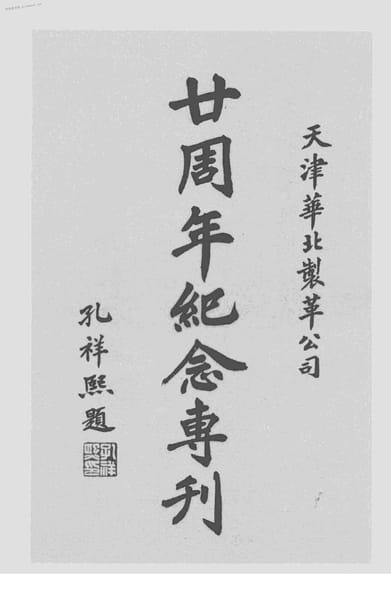 天津華北製革公司
廿周年紀念專刊
孔祥熙題